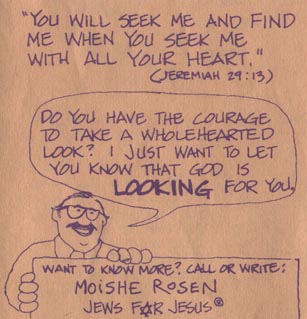 "YOU WILL SEEK ME AND FIND
ME WHEN YOU SEEK ME
WITH ALL YOUR HEART."
(JEREMIAH 29:13)
DO YOU HAVE THE COURAGE
TO TAKE A WHOLEHEARTED
LOOK? I JUST WANT TO LET
YOU KNOW THAT GOD IS
LOOKING FOR YOU.
WANT TO KNOW MORE? CALL OR WRITE:
MOISHE ROSEN
JEWS F✡R JESUS®